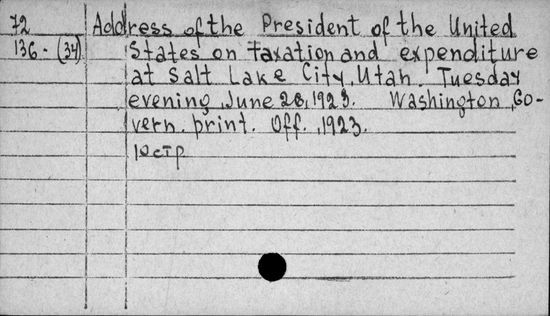 72 Address of the President of the United
136-(34) States on taxation and expenditure
at Salt Lake City, Utah. Tuesday
evening, June 26, 1923. Washington, Go-
vern. print. Off., 1923.
10 стр